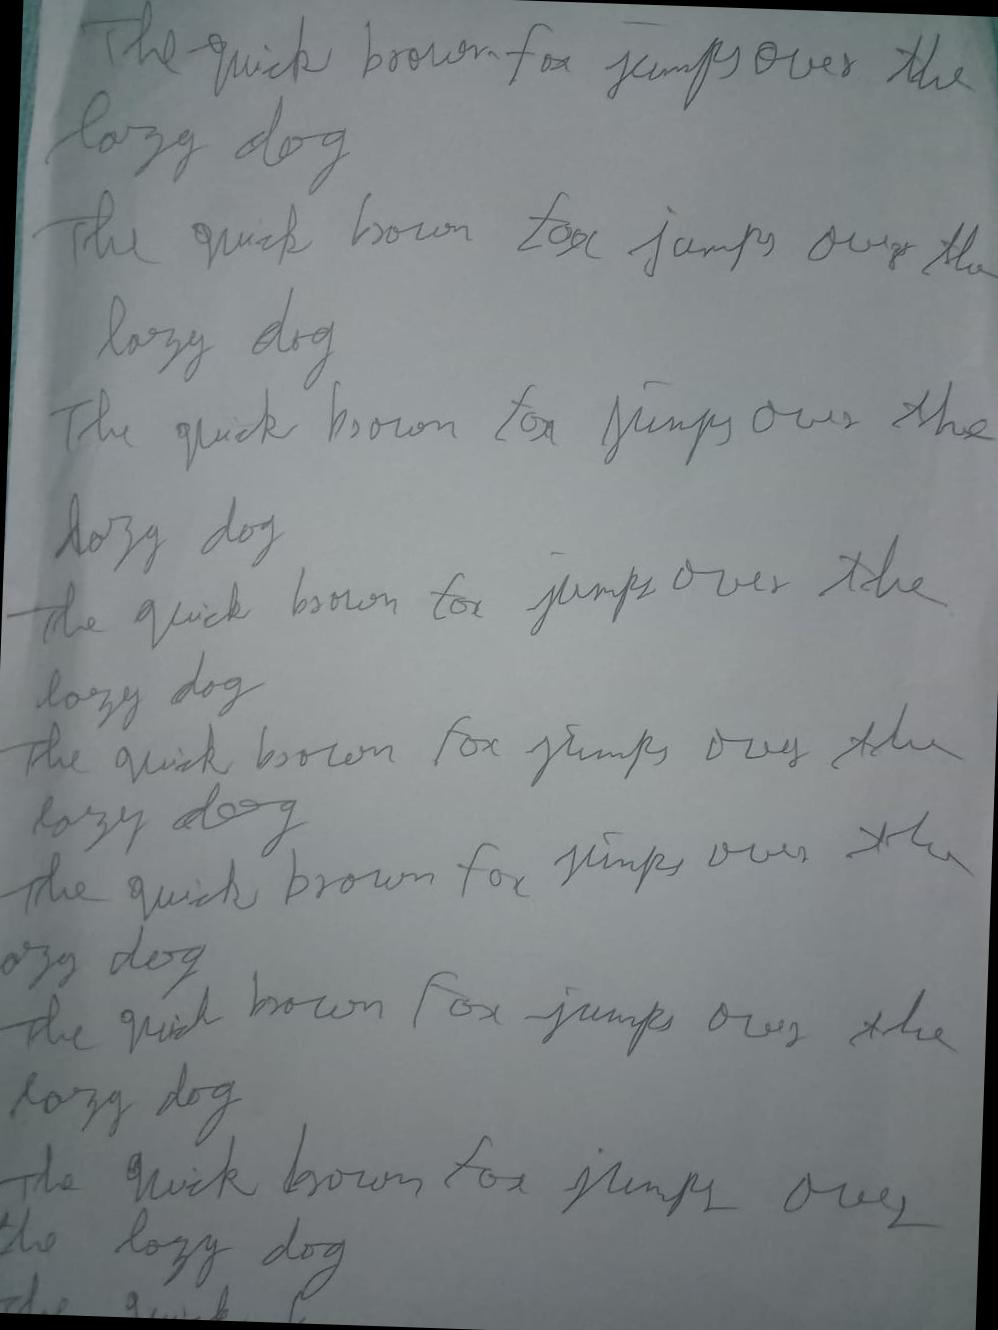 The quick brown fox jumps over the
lazy dog
The quick brown fox jumps over the
lazy dog
The quick brown fox jumps over the
lazy dog
The quick brown fox jumps over the
lazy dog
The quick brown fox jumps over the
lazy dog
The quick brown fox jumps over the
azy dog
The quick brown fox jumps over the
lazy dog
The quick brown fox jumps over
the lazy dog
The quick